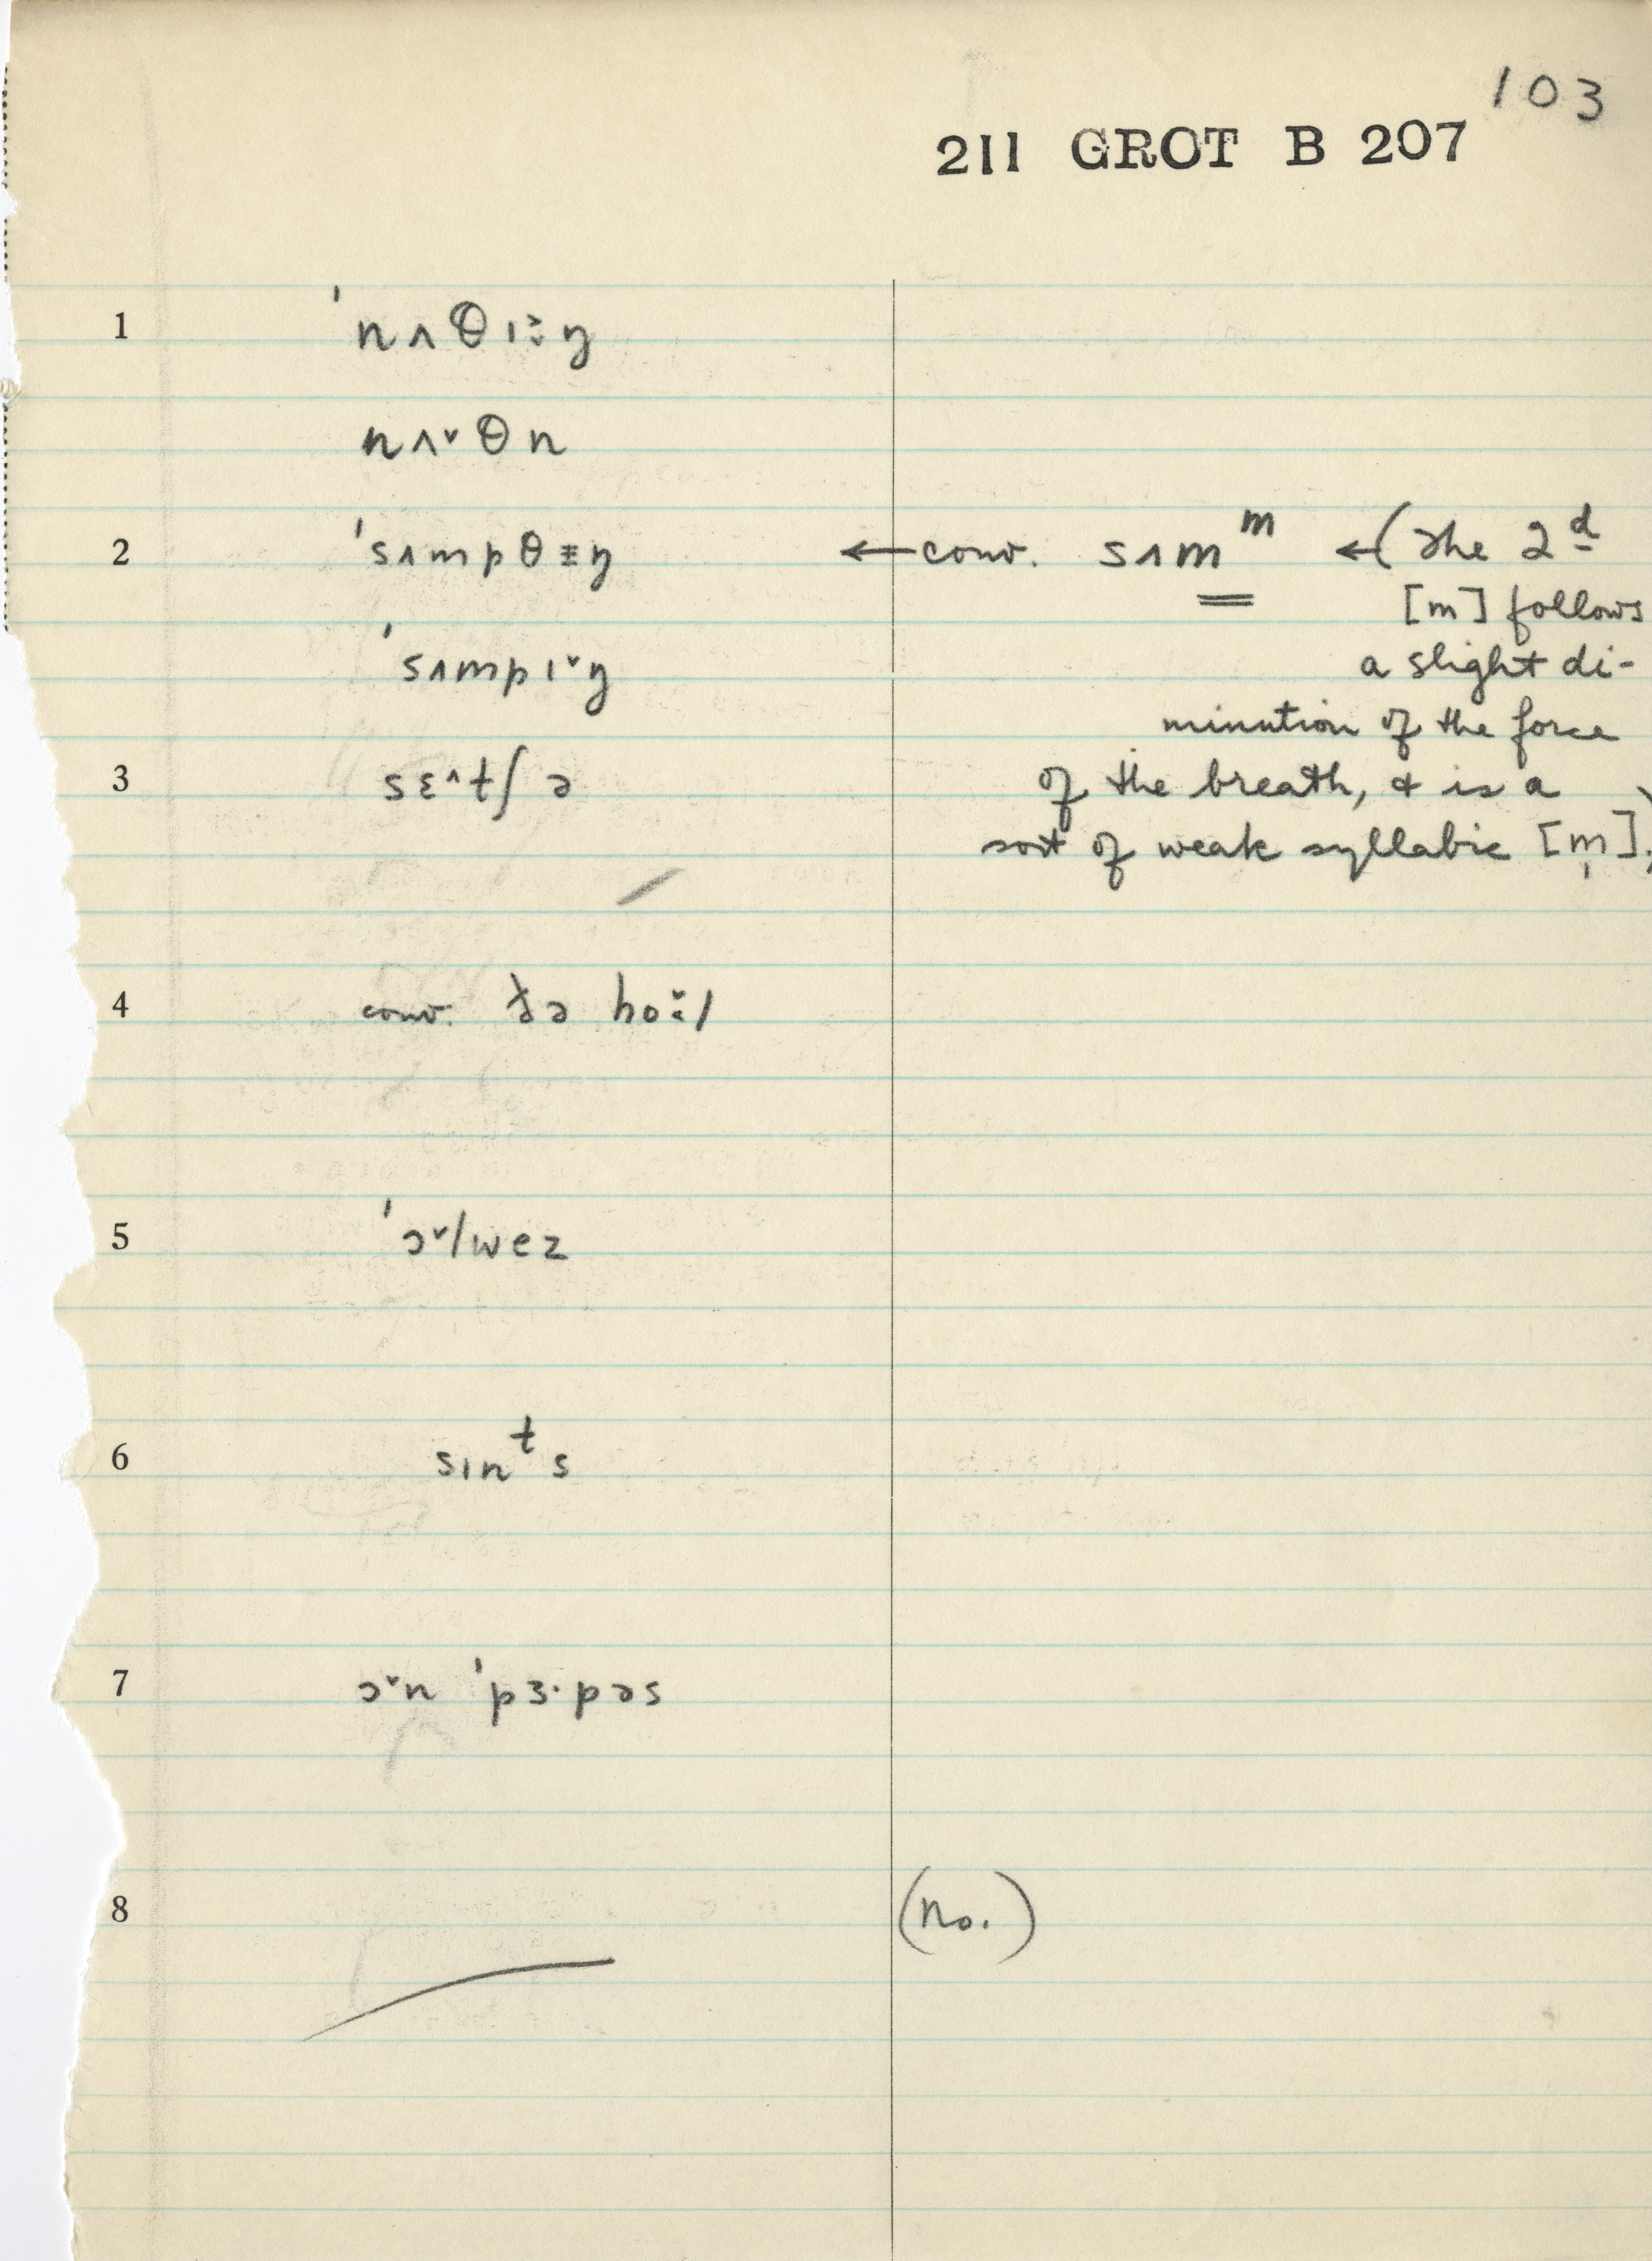 103
211 GROT B 207
1 ˈnʌθɪ⪰̬ŋ
nʌ˅θn
2 ˈsʌmpθɨŋ ← conv. sʌmᵐ ← (The 2d
[m] follows
ˈsʌmpɪ˅ŋ a slight di-
minution of the force
3 sɛ^tʃə of the breath, & is a
sort of weak syllabic [m̩].)
4 conv. ðə hoːl
5 ˈɔ˅lwez
6 sɪnᵗs
7 ɔ˅n ˈpɜ·pəs
8 (No.)